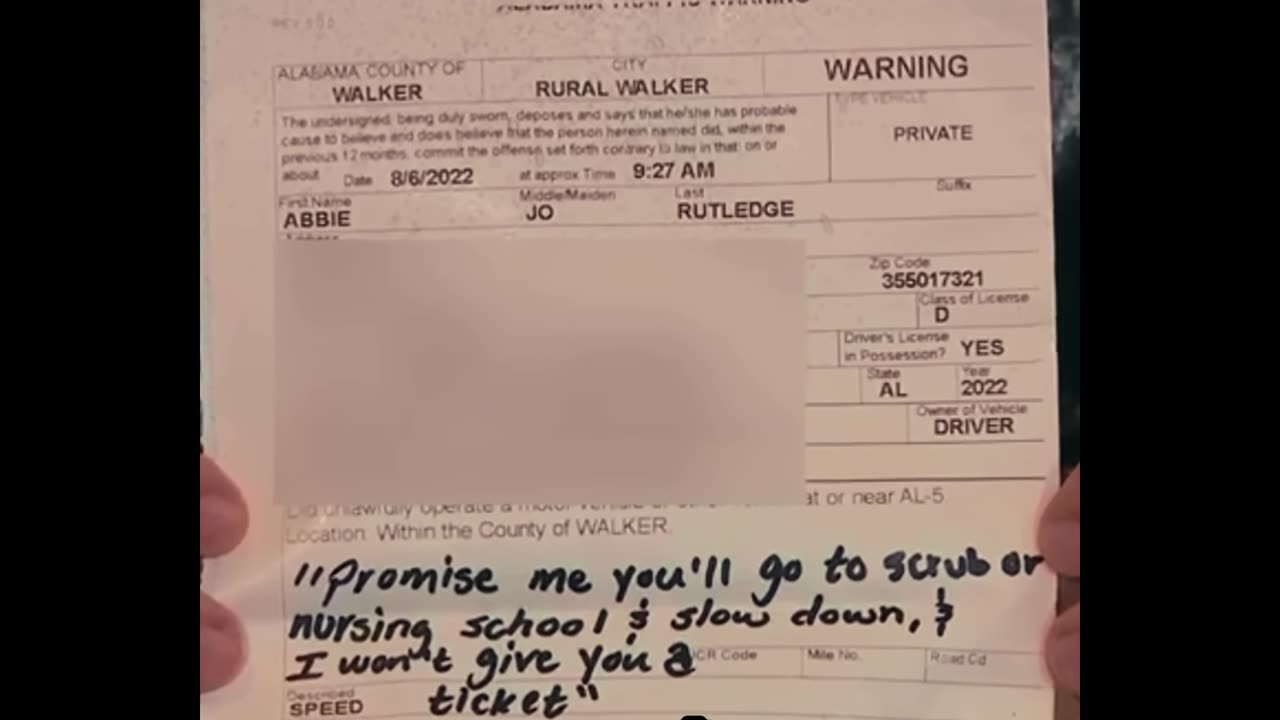 ALABAMA TRAFFIC WARNING
ALABAMA COUNTY OF
WALKER
CITY
RURAL WALKER
WARNING
The undersigned, being duly sworn, deposes and says that he/she has probable
cause to believe and does believe that the person herein named did, within the
previous 12 months, commit the offense set forth contrary to law in that: on or
about Date 8/6/2022 at approx Time 9:27 AM
TYPE VEHICLE
PRIVATE
First Name
ABBIE
Middle/Maiden
JO
Last
RUTLEDGE
Suffix
Address
Zip Code
355017321
Class of License
D
Driver's License
in Possession? YES
State
AL
Year
2022
Owner of Vehicle
DRIVER
Did unlawfully operate a motor vehicle at or near AL-5
Location: Within the County of WALKER.
"Promise me you'll go to scrub or
nursing school & slow down, &
I won't give you a
ticket"
UCR Code
Mile No.
Road Cd
Described
SPEED